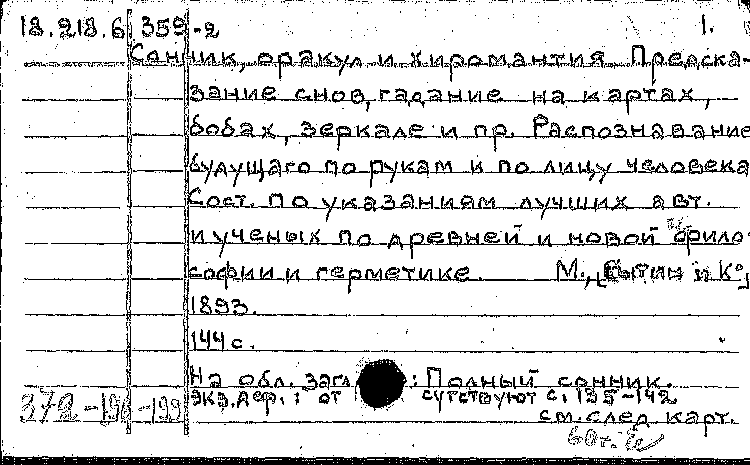 18.218.6 359-2 1.
Сонник, оракул и хиромантия Предска-
зание снов, гадание на картах,
бобах, зеркале и пр. Распознавание
будущаго по рукам и по лицу человека
Сост. по указаниям лучших авт.
и ученых по древней и новой фило-
софии и герметике. М., [Сытин и К°]
1893.
144 с.
На обл. загл : Полный сонник.
Экз. деф.: от сутствуют с. 135-142
372-196-199 см. след. карт.